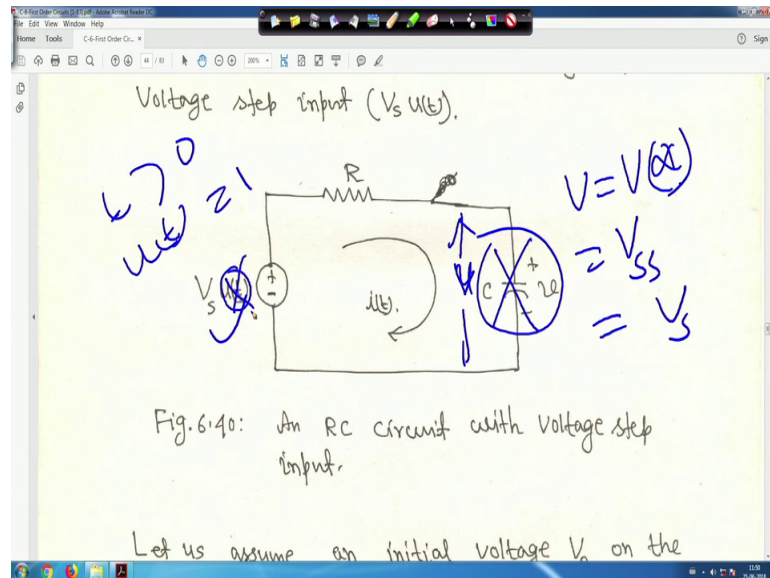 C-6-First Order Circuits [1-83].pdf - Adobe Acrobat Reader DC
File Edit View Window Help
Home Tools C-6-First Order Circ... × Sign
44 / 83 200%
Voltage step input (Vs u(t)).
t > 0
u(t) = 1
R
V = V(∝)
= Vss
= Vs
Vs u(t)
+
-
i(t).
C
+
v
-
Fig. 6.40: An RC circuit with voltage step
input.
Let us assume an initial voltage V0 on the
11:50
25-06-2018